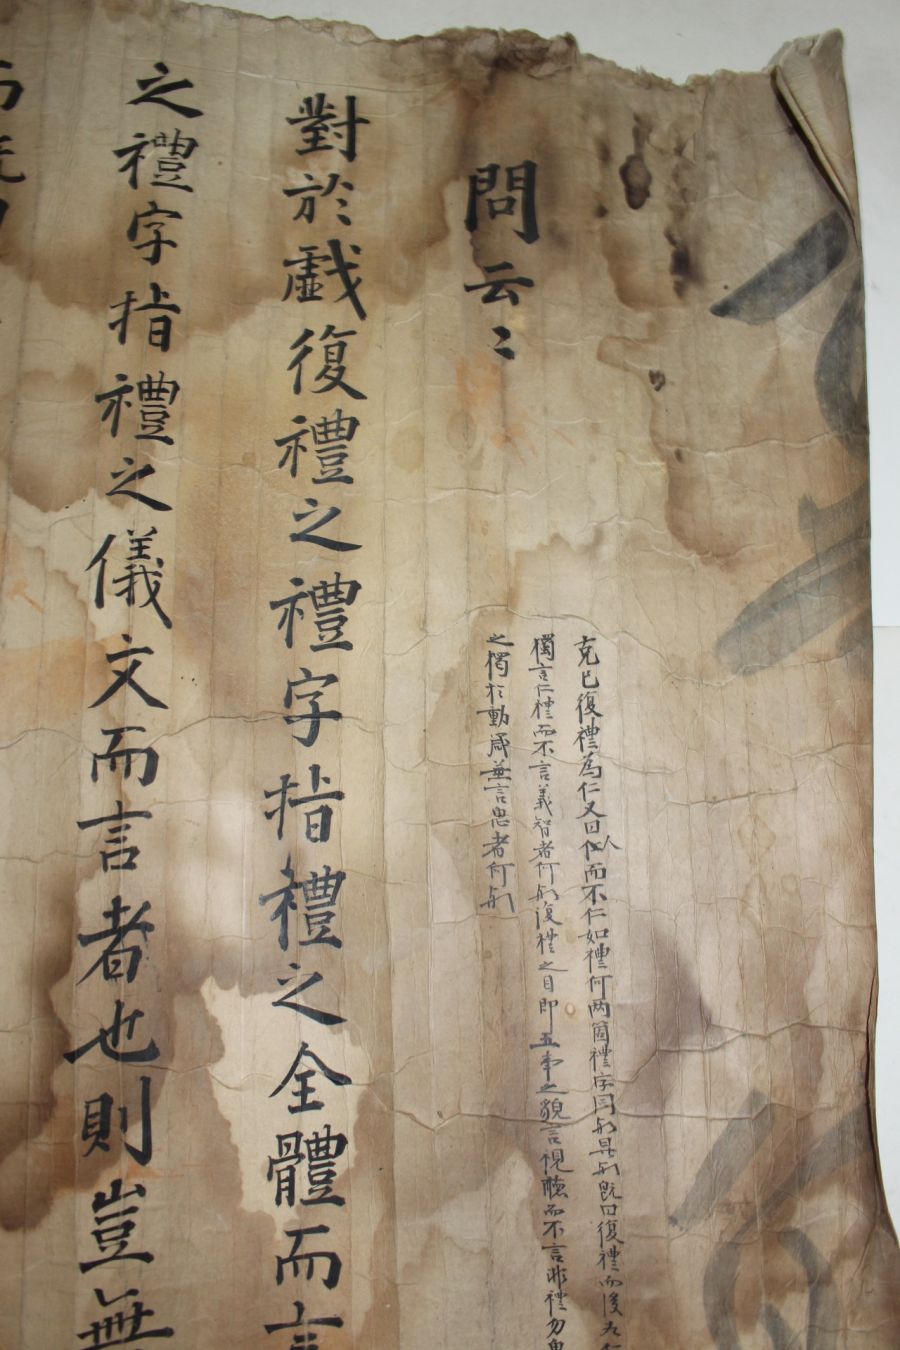 克己復禮為仁又曰人而不仁如禮何两箇禮字同歟異歟旣曰復禮而後為仁
獨言仁禮而不言義智者何歟復禮之目即五事之貌言視聽而不言非禮勿
之獨於動處兼言思者何歟
問云〻
對於戱復禮之禮字指禮之全體而言
之禮字指禮之儀文而言者也則豈無